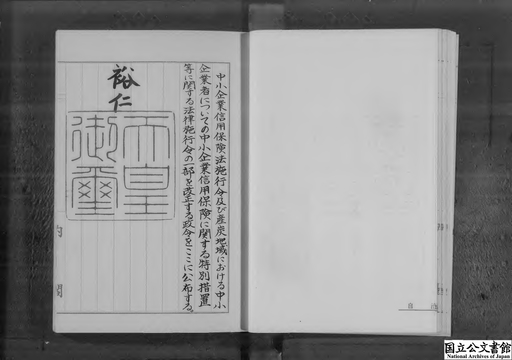 中小企業信用保険法施行令及び産炭地域における中小
企業者についての中小企業信用保険に関する特別措置
等に関する法律施行令の一部を改正する政令をここに公布する。
裕仁
天皇
御璽
内
閣
国立公文書館
National Archives of Japan